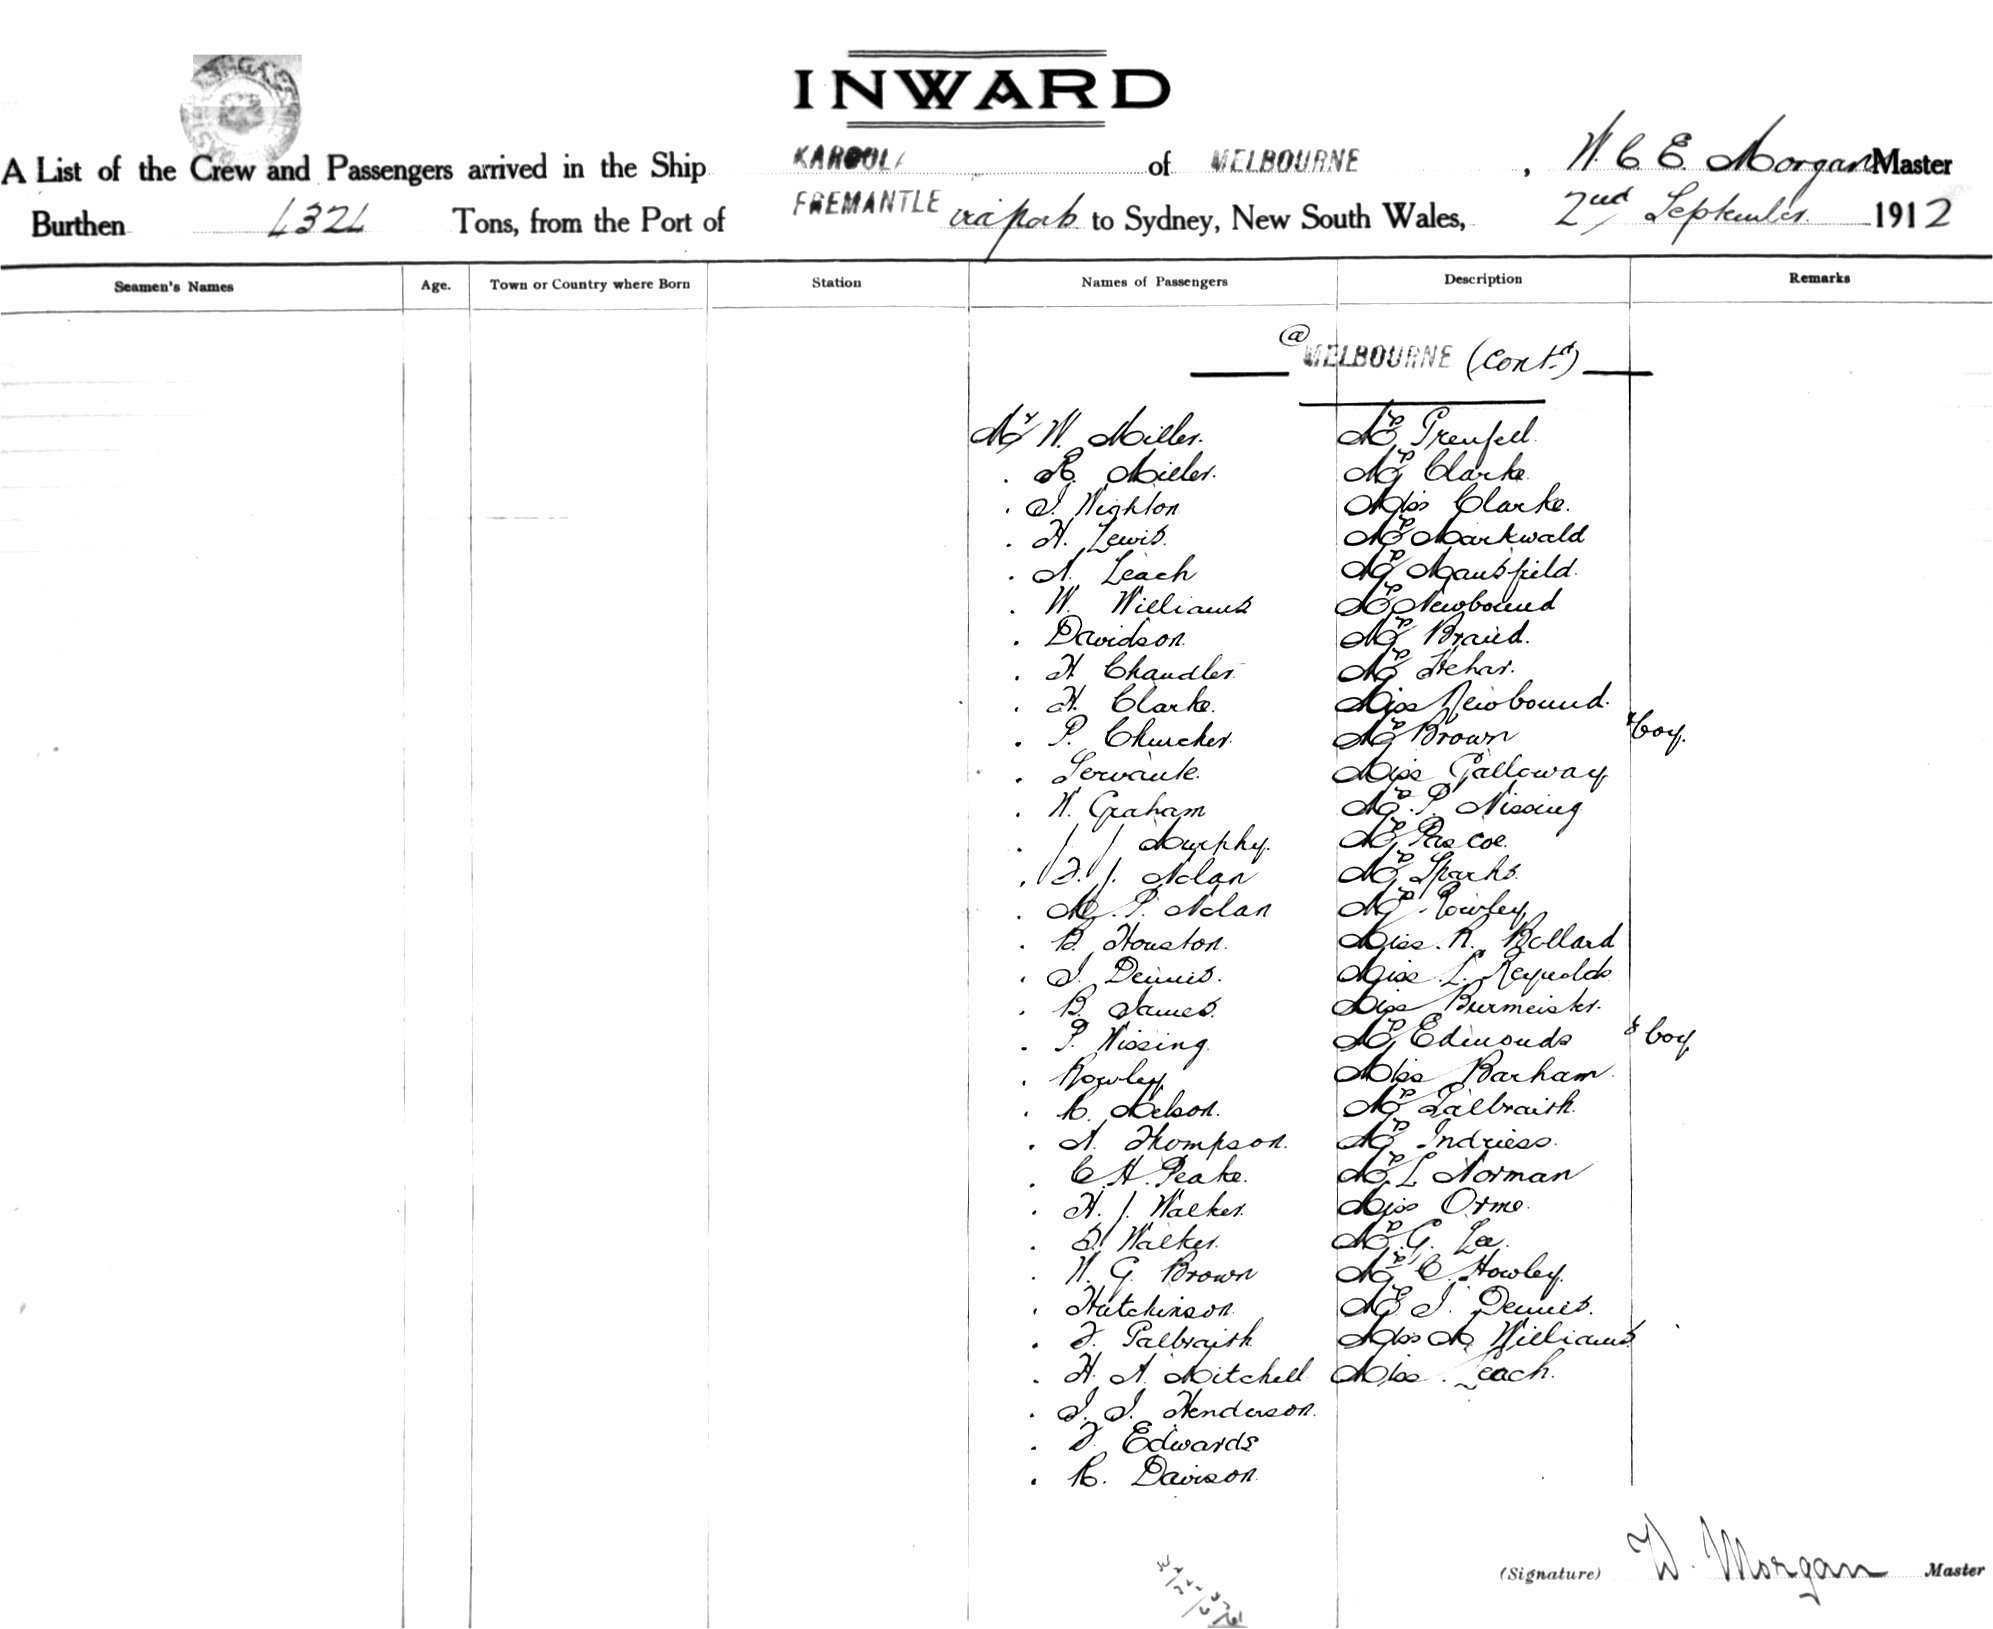 INWARD
A List of the Crew and Passengers arrived in the Ship KAROOLA of MELBOURNE, W. C. E. Morgan Master
Burthen 4324 Tons, from the Port of FREMANTLE via ports to Sydney, New South Wales, 2nd September 1912
Seamen's Names Age. Town or Country where Born Station Names of Passengers Description Remarks
@ MELBOURNE (Contd)
Mr W. Miller. Mrs Grenfell.
. R. Miller. Mrs Clarke
. J. Wighton Miss Clarke.
. H. Lewis. Mrs Markwald
. A. Leach Mrs Mansfield.
. W. Williams Mrs Newbound
. Davidson. Mrs Braid.
. H Chandler. Mrs
. H. Clarke. Miss Newbound.
. P. Churcher. Mrs Brown & boy.
. Servante. Miss Galloway
. W. Graham Mrs. P. Nissing
. J J Murphy. Mrs Pascoe.
. F. J. Nolan Mrs Sparks.
. M. P. Nolan Mrs Rowley
. B. Houston. Miss. R. Bollard
. J. Dennis. Miss. L. Reynolds
. B. James. Miss Burmeister.
. P. Nissing. Mrs Edmonds & boy
. Rowley Miss Barham.
. R. Nelson. Mrs Galbraith.
. A. Thompson. Mrs Indriess.
. C. H. Peake. Mrs. L Norman
. H. J. Walker. Miss Orme.
. Walker. Mrs. G. Lee.
. W. G. Brown Mrs C. Howley.
. Hutchinson Mrs J. Dennis.
. F. Galbraith Miss M. Williams
. H. A. Mitchell Miss. Leach.
. J. J. Henderson.
. F. Edwards
. R. Davison.
(Signature) W. Morgan Master